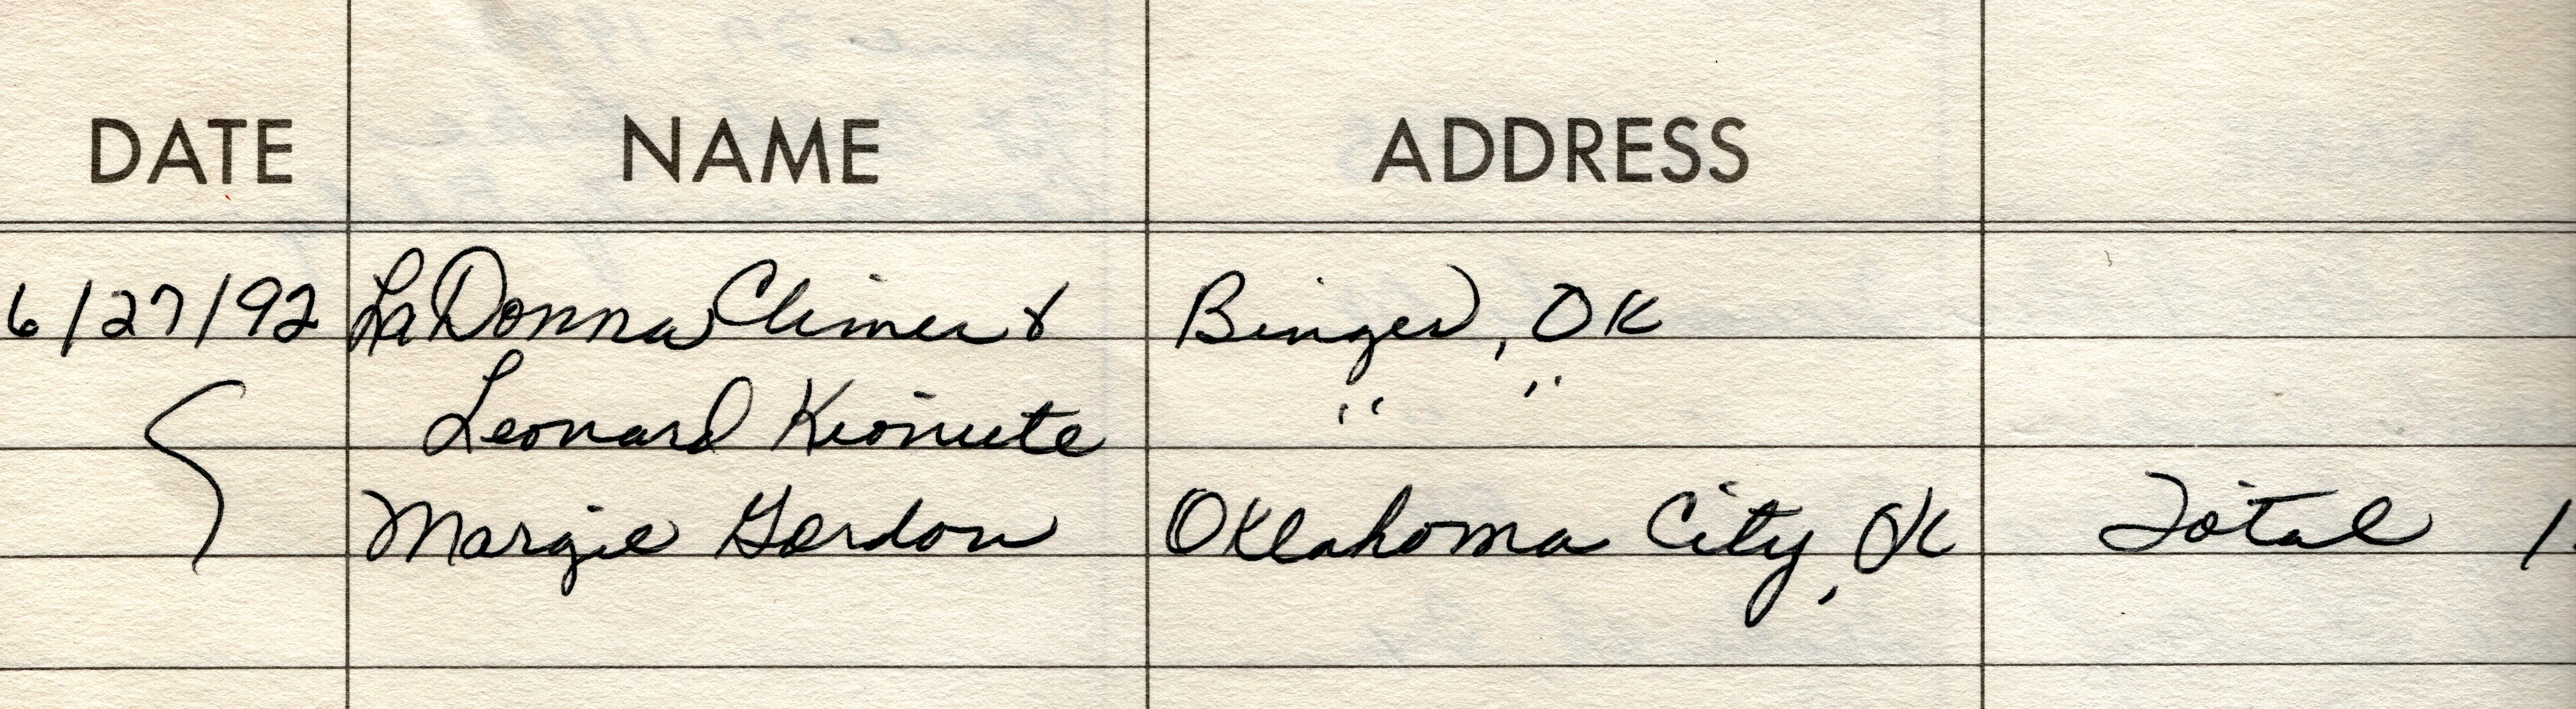 DATE NAME ADDRESS
6/27/92 LaDonna Climer & Binger, OK
Leonard Kioniute " "
Margie Gordon Oklahoma City, OK Total 1